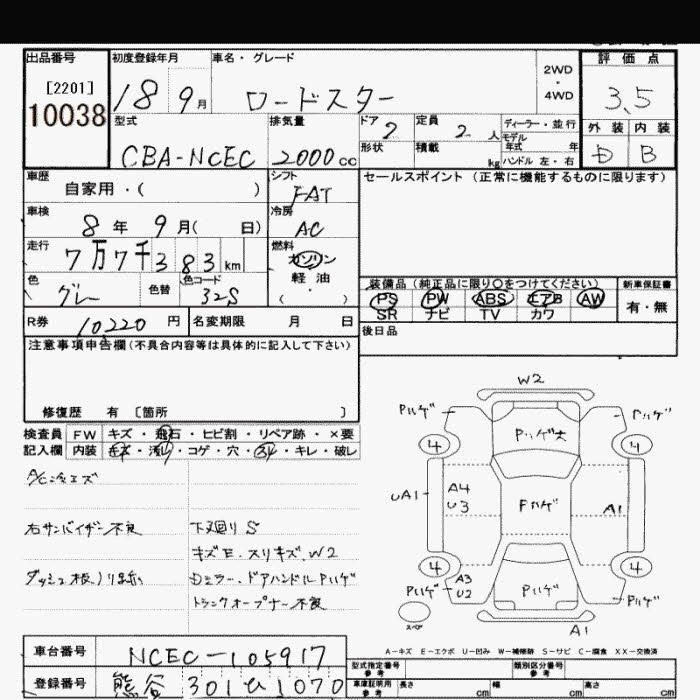 出品番号 初度登録年月 車名・グレード 2WD・4WD 評価点
[2201] 10038 18 9月 ロードスター 3.5
型式 排気量 ドア 2 定員 2人 ディーラー・並行 外装 内装
CBA-NCEC 2000cc 形状 積載 kg モデル年式 年 ハンドル 左・右 D B
車歴 自家用・( ) シフト FAT セールスポイント (正常に機能するものに限ります)
車検 8年 9月( 日) 冷房 AC
走行 7万7千383km 燃料 ガソリン 軽油 ( ・ )
色 グレー 色替 色コード 32S 装備品 (純正品に限り○をつけてください) 新車保証書
PS PW ABS エアB AW 有・無
SR ナビ TV カワ
R券 10220円 名変期限 月 日 後日品
注意事項申告欄(不具合内容等は具体的に記入して下さい)
修復歴 有 〔箇所 〕
検査員 FW キズ・飛石・ヒビ割・リペア跡・×要
記入欄 内装 キズ・汚レ・コゲ・穴・スレ・キレ・破レ
A/C冷エズ
右サンバイザー不良 下廻りS
キズE.スリキズ.W2
Dミラー.ドアハンドルPハゲ
トランクオープナー不良
W2
Pハゲ Pハゲ大 Pハゲ
4 4
UA1 A4 U3 Fハゲ A1
4 4
Pハゲ A3 U2 Pハゲ Pハゲ
スペア A1
A-キズ E-エクボ U-凹み W-補修跡 S-サビ C-腐食 XX-交換済
車台番号 NCEC-105917
登録番号 熊谷 301 ひ 1070
型式指定番号 参考 類別区分番号 参考
車庫証明用 参考 長さ cm 幅 cm 高さ cm